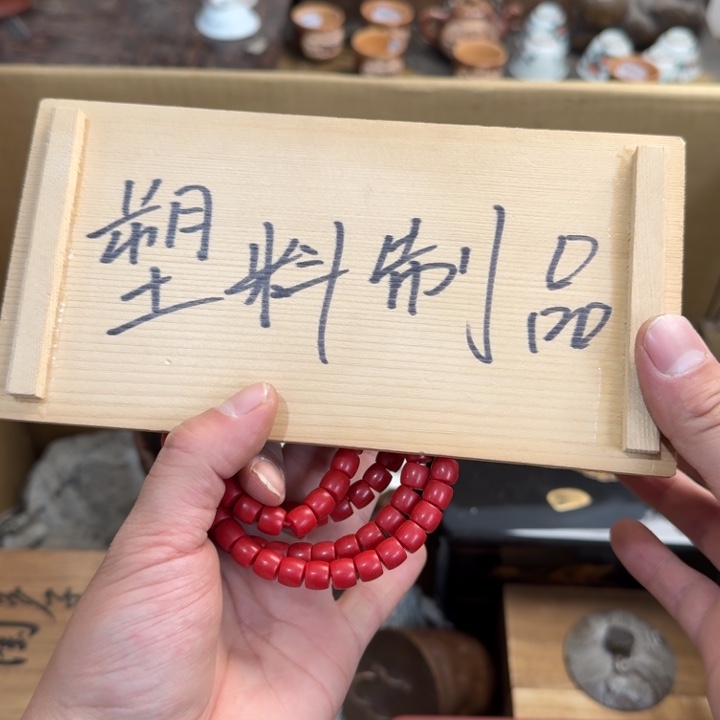 塑料制品